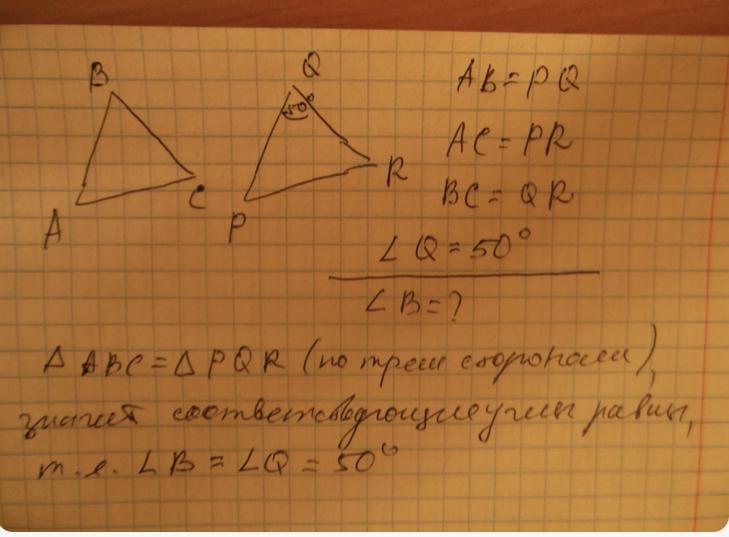 B
Q
50°
A
C
P
R
AB = PQ
AC = PR
BC = QR
∠Q = 50°
∠B = ?
△ABC = △PQR (по трем сторонам),
значит соответствующие углы равны,
т.е. ∠B = ∠Q = 50°